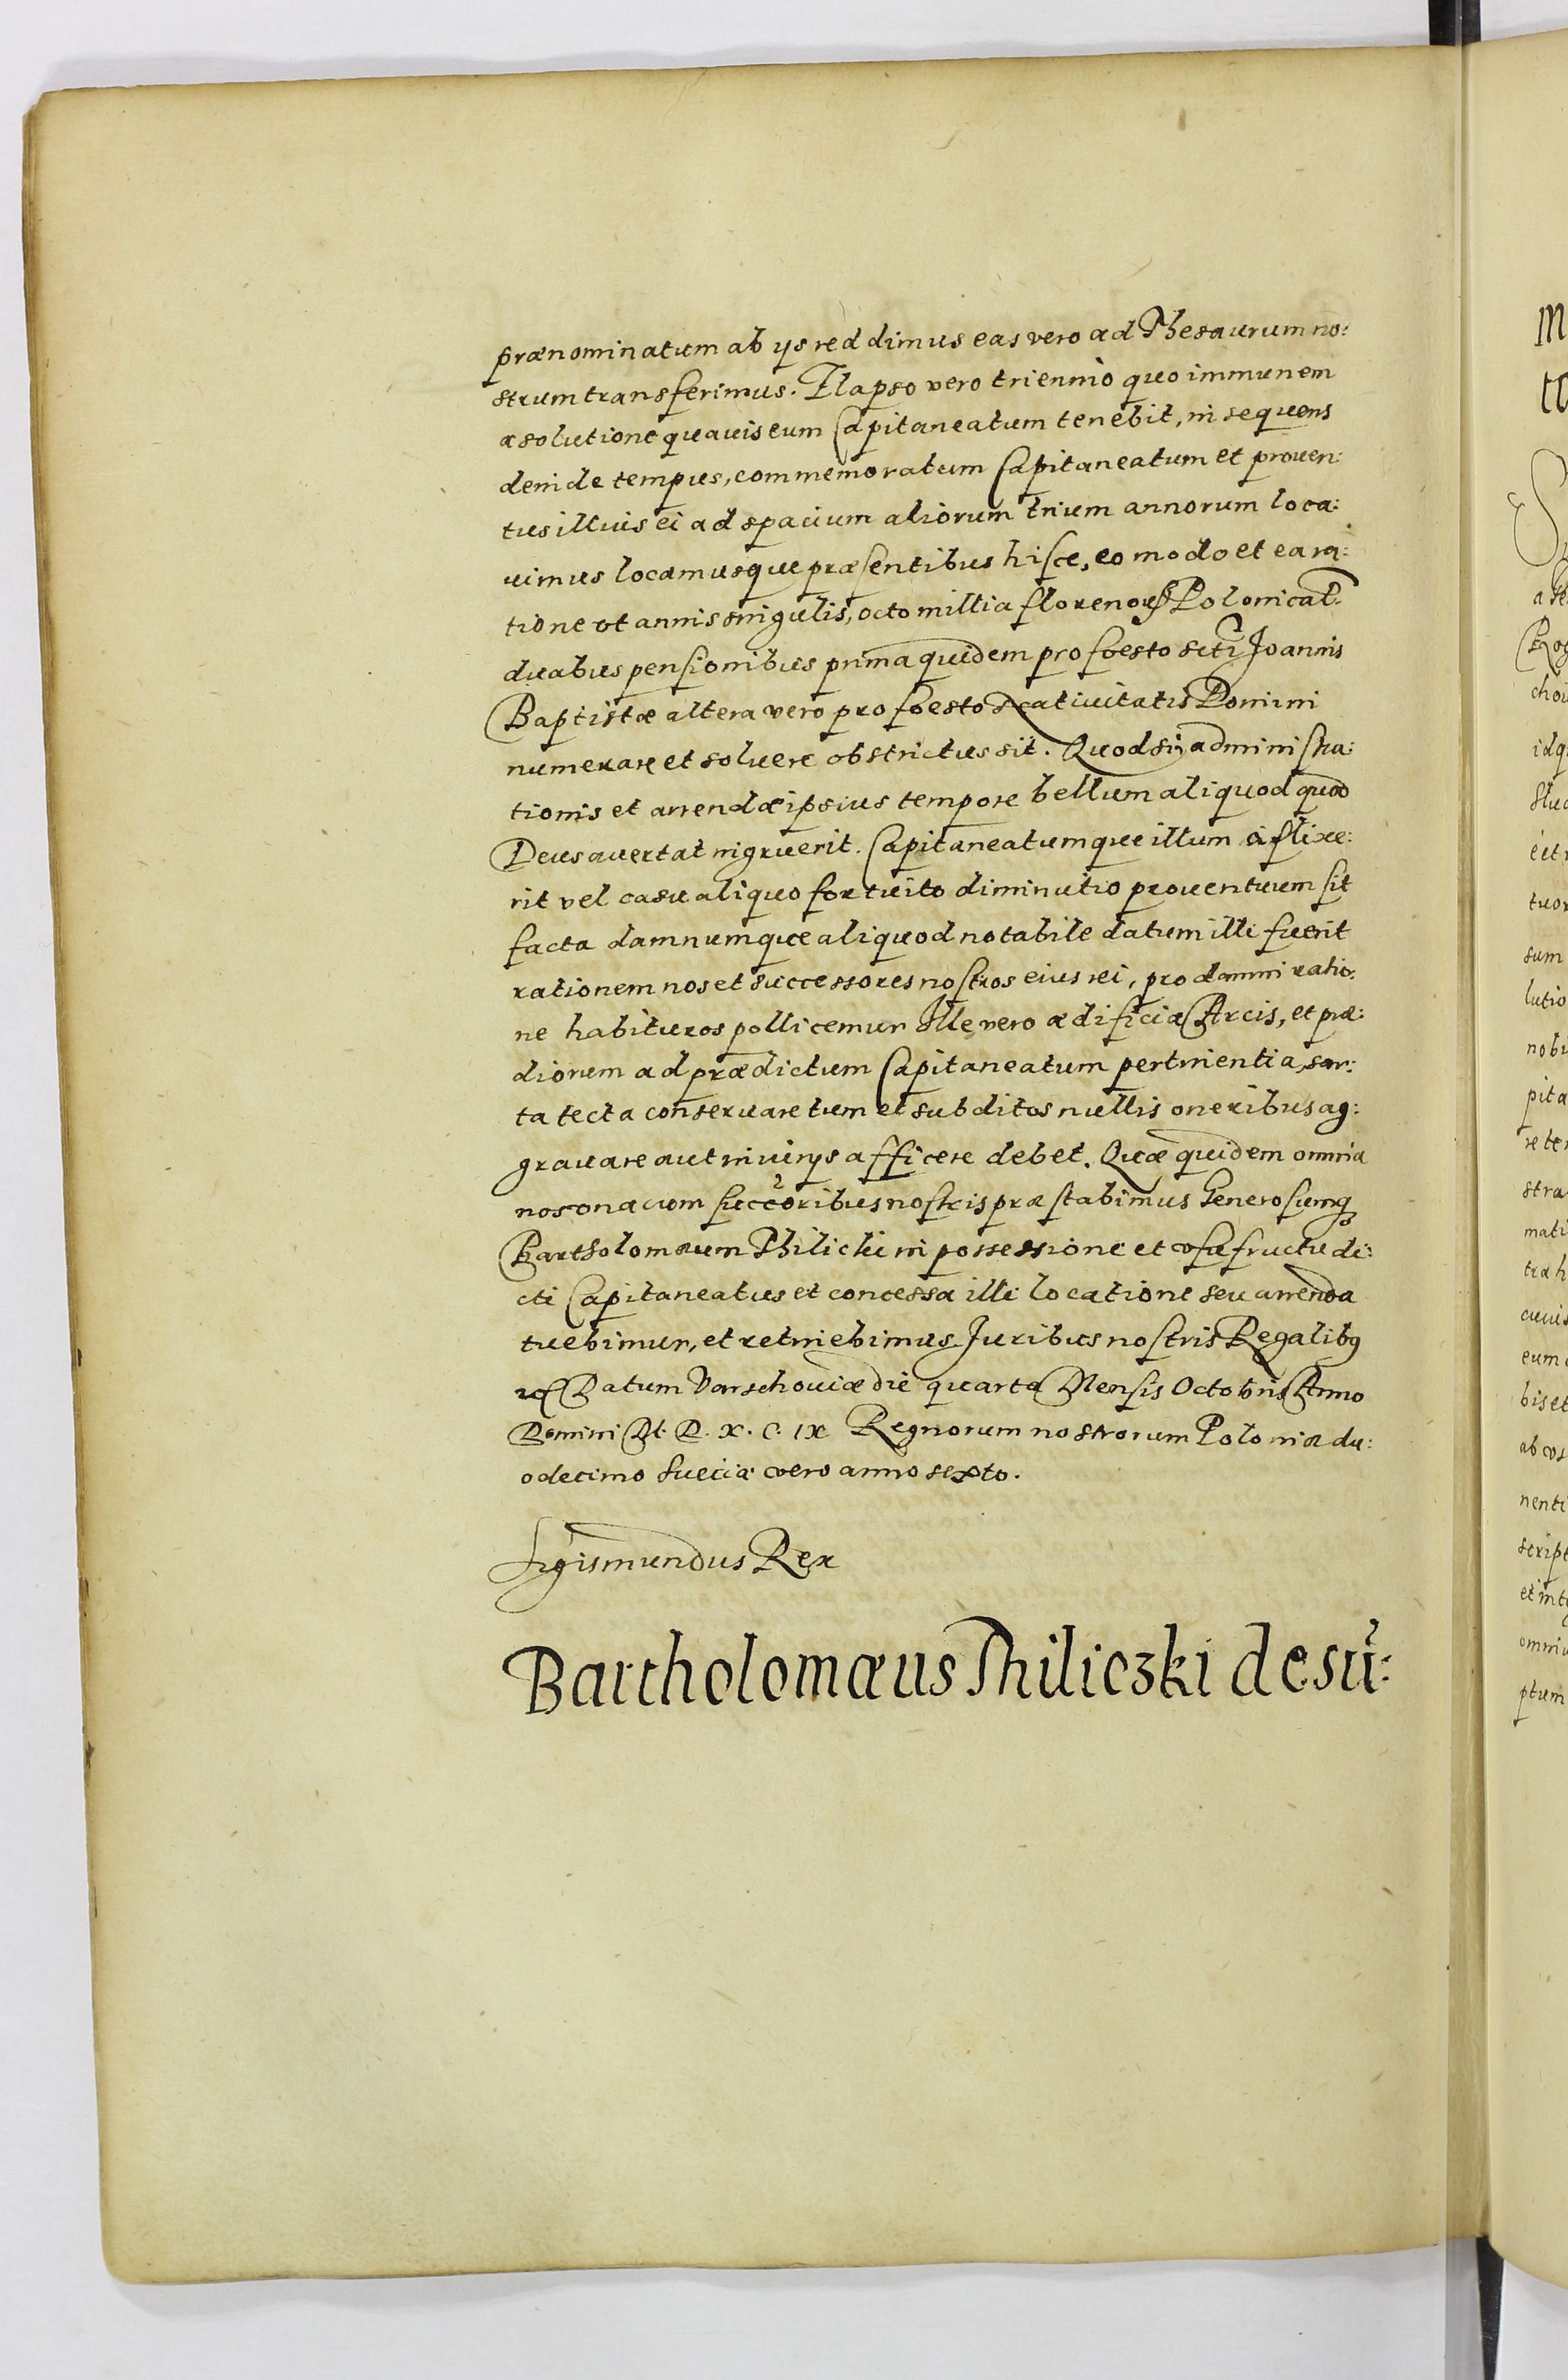 prænominatum ab ijs reddimus eas vero ad Thesaurum no:
strum transferimus. Elapso vero triennio quo immunem
a solutione quavis eum Capitaneatum tenebit, in sequens
deinde tempus, commemoratum Capitaneatum et proven:
tus illius ei ad spacium aliorum trium annorum loca:
uimus locamusque præsentibus hisce, eo modo et ea ra:
tione vt annis singulis, octo millia florenorum Polonical:
duabus pensionibus prima quidem pro foesto scti Joannis
Baptistæ altera vero pro foesto Natiuitatis Domini
numerare et soluere obstrictus sit. Quod si administra:
tionis et arrendæ ipsius tempore bellum aliquod quod
Deus avertat ingruerit. Capitaneatumque illum aflixe:
rit vel casu aliquo fortuito diminutio prouentuum sit
facta damnumque aliquod notabile datum illi fuerit
rationem nos et successores nostros eius rei, pro damni ratio:
ne habituros pollicemur Ille vero ædificia Arcis, et præ:
diorum ad prædictum Capitaneatum pertinentia, sar:
ta tecta conseruare tum et subditos nullis oneribus ag:
grauare aut iniurijs afficere debet. Quæ quidem omnia
nos ona cum succoribus nostris præstabimus Generosumq
Bartholomæum Philicki in possessione et vsufructu di:
cti Capitaneatus et concessa illi locatione seu arrenda
tuebimur, et retinebimus Juribus nostris Regalibq
Datum Varschouiæ die quarta Mensis Octobris Anno
Domini M. D. X. C. IX Regnorum nostrorum Poloniæ du:
odecimo Sueciæ vero anno sexto.
Sigismundus Rex
Bartholomæus Thiliczki desu:
m
to
S
Rog
choi
idq
stuc
tuor
sum
lutio
nobi
pita
reter
stra
mati
træ h
cuius
eum
bis et
ab vs
nenti
script
et int
omniu
ptum